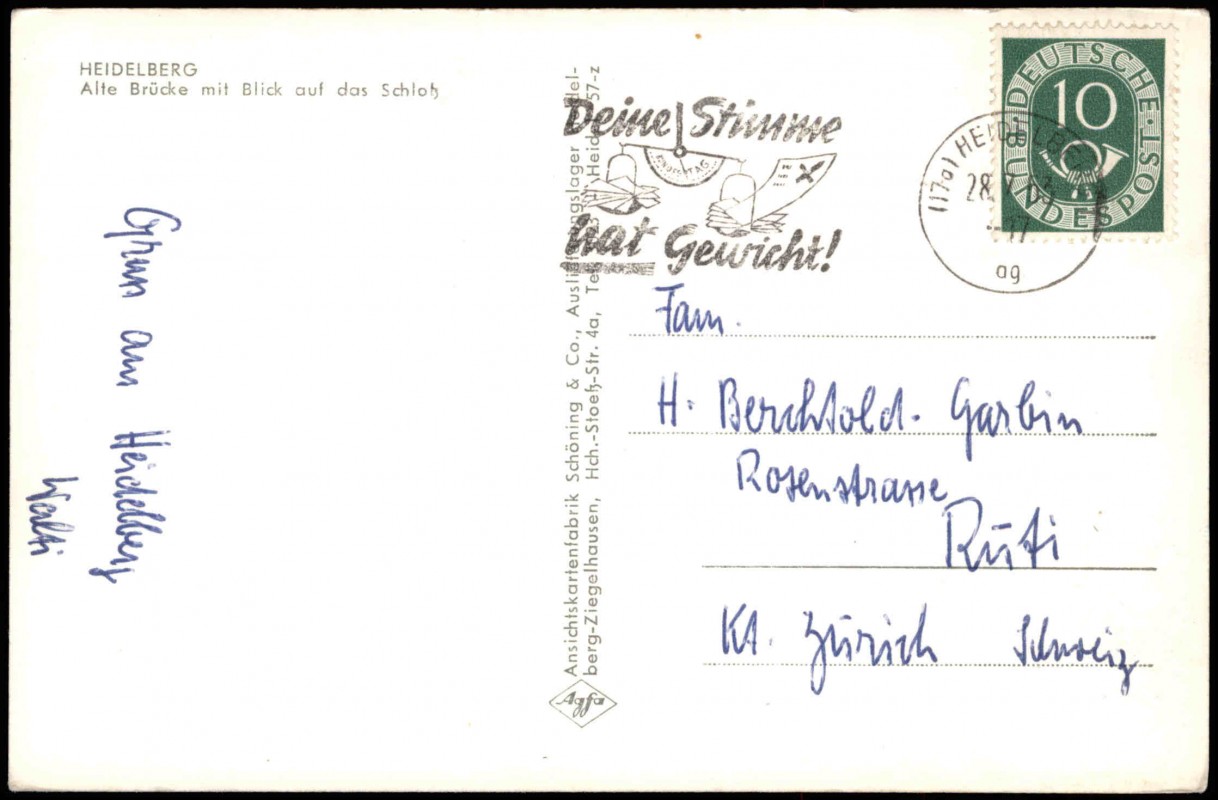 HEIDELBERG
Alte Brücke mit Blick auf das Schloß
Gruss aus
Heidelberg
Walti
Ansichtskartenfabrik Schöning & Co., Heidel-
berg-Ziegelhausen, Hch.-Stoeß-Str. 4a, 57-z
Agfa
Deine Stimme
hat Gewicht!
DEUTSCHE BUNDESPOST
10
(17a) HEIDELBERG
28
17
ag
Fam.
H. Berchtold-Garbin
Rosenstrasse
Rüti
Kt. Zürich Schweiz